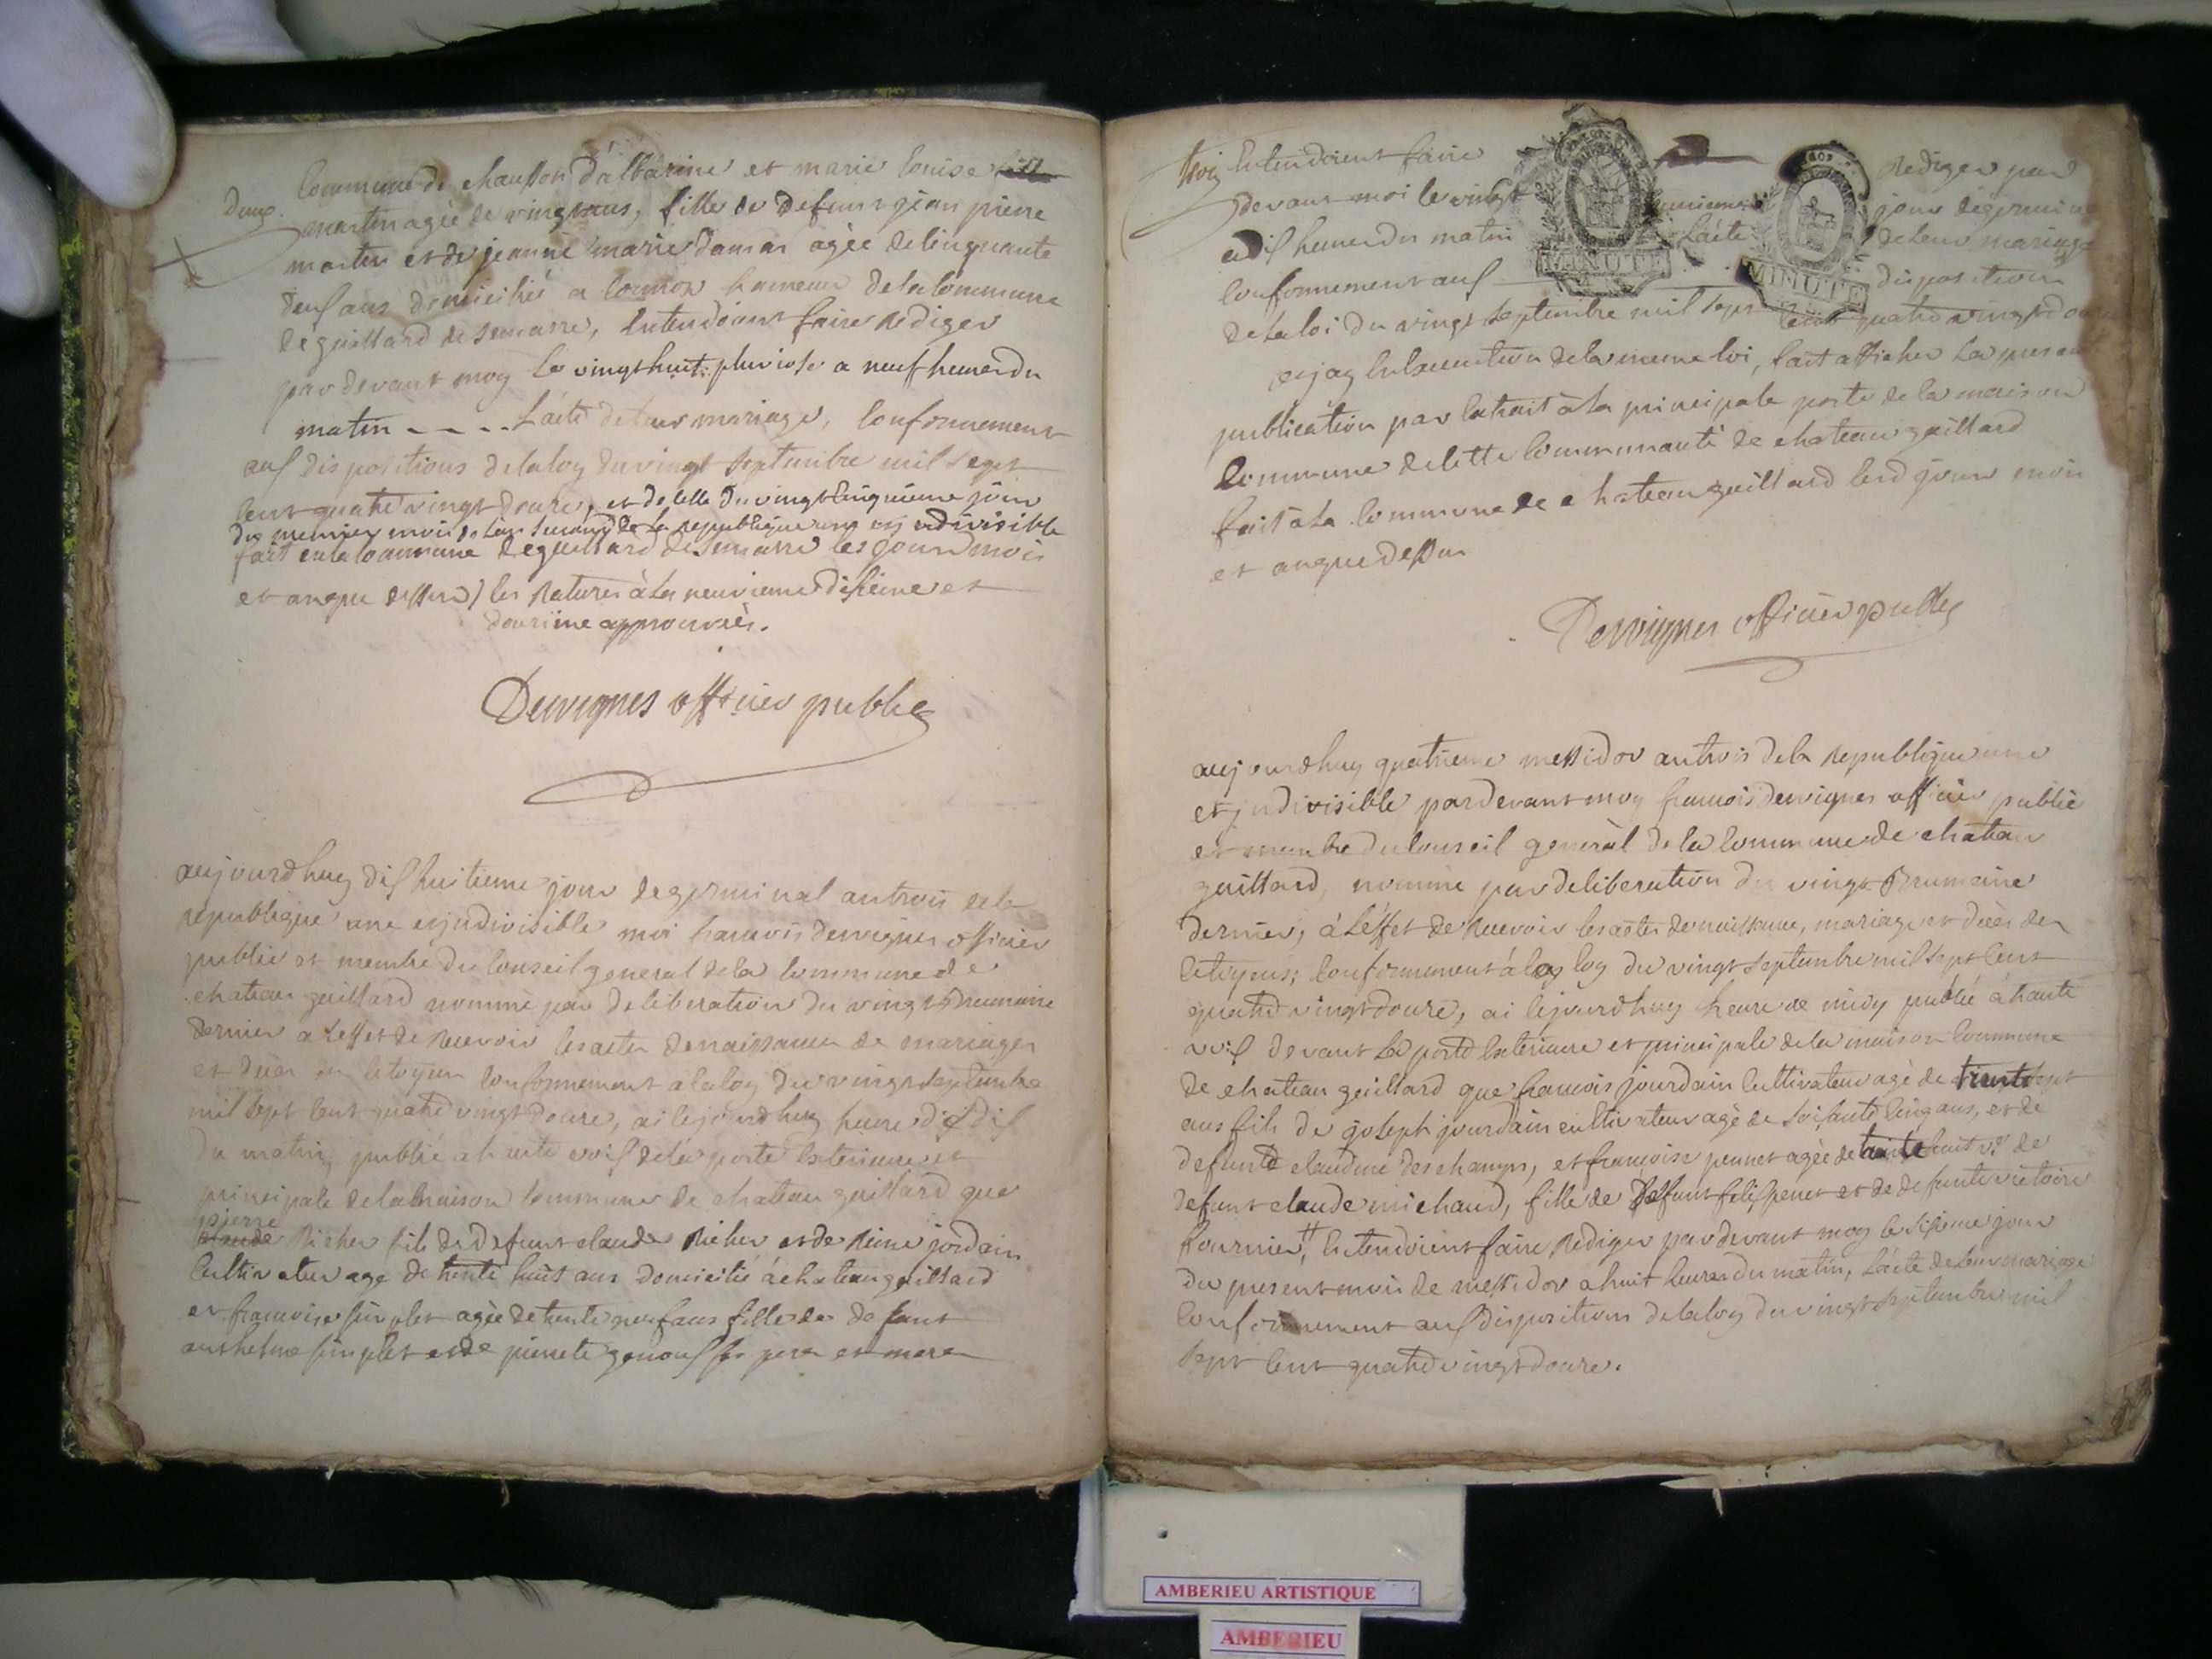 Deux.
commune de chausson d'albarine et marie louise
martin agèe de vingt ans, fille de defunt jean pierre
martin et de jeanne marie damas agèe de cinquante
deux ans domicilié a cormoz hameau de la commune
de gaillard de semarre, entendoient faire rediger
par devant moy le vingt huit pluviose a neuf heures du
matin - - - - L'acte de leur mariage, conformement
aux dispositions de la loy du vingt septembre mil sept
cent quatre vingt douze, et de celle du vingt cinquieme jour
du premier mois de l'an second de la republique une et indivisible
fait en la commune de gaillard de semarre les jour mois
et an que dessus) les ratures à la neuvieme dixieme et
douzime approuvées.
Dervignes officier public
aujourdhuy dix huitieme jour de germinal an trois de la
republique une et indivisible moi francois dervignes officier
public et membre du conseil general de la commune de
chateau gaillard nommé par deliberation du vingt brumaire
dernier a l'effet de recevoir les actes de naissances de mariages
et décès des citoyens conformement a la loy du vingt septembre
mil sept cent quatre vingt douze, ai cejourdhuy heure de dix
du matin, publié a haute voix de la porte exterieure et
principale de la maison commune de chateau gaillard que
pierre
claude Richer fils de defunt claude Richer et de Reine jordain
cultivateur age de trente huit ans domicilié à chateau gaillard
et francoise simplet agèe de trente neuf ans fille de defunt
anthelme simplet et de pierrete genoux ses pere et mere
trois
entendoient faire rediger par
devant moi le vingt unieme jour de germinal
a dix heures du matin L'acte de leur mariage
conformement aux disposition
de la loi du vingt septembre mil sept cent quatre vingt douze
et jay en execution de la meme loi, fait afficher la presente
publication par extrait à la principale porte de la maison
commune de cette communauté de chateau gaillard
fait a la commune de chateau gaillard lesd jour mois
et an que dessus
Dervignes officier public
MINUTE
MINUTE
aujourdhuy quatrieme messidor an trois de la republique une
et indivisible pardevant moy francois dervignes officier public
et membre du conseil general de la commune de chateau
gaillard, nommé par deliberation du vingt Brumaire
dernier, à L'effet de recevoir les actes de naissance, mariage et décès des
citoyens; conformement à la loy du vingt septembre mil sept cent
quatre vingt douze, ai cejourdhuy heure de midy publié à haute
voix devant la porte exterieure et principale de la maison commune
de chateau gaillard que francois jourdain cultivateur agè de trente sept
ans fils de joseph jourdain cultivateur agè de soixante cinq ans, et de
defunte claudine deschamps, et francoise pennet agèe de trente huit v.e de
defunt claude michaud, fille de deffunt felix penet et de defunte victoire
fournier, # entendoient faire rediger par devant moy le sixieme jour
du present mois de messidor a huit heures du matin, L'acte de leur mariage
conformement aux dispositions de la loy du vingt septembre mil
sept cent quatre vingt douze.
AMBERIEU ARTISTIQUE
AMBERIEU